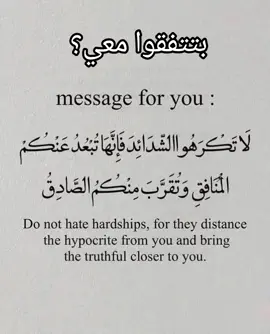 بتتفقوا معي؟
message for you :
لَا تَكْرَهُوا الشَّدَائِدَ فَإِنَّهَا تُبْعُدُ عَنْكُمْ
الْمُنَافِقِ وَتُقَرَّبَ مِنْكُمْ الصَّادِقُ
Do not hate hardships, for they distance
the hypocrite from you and bring
the truthful closer to you.